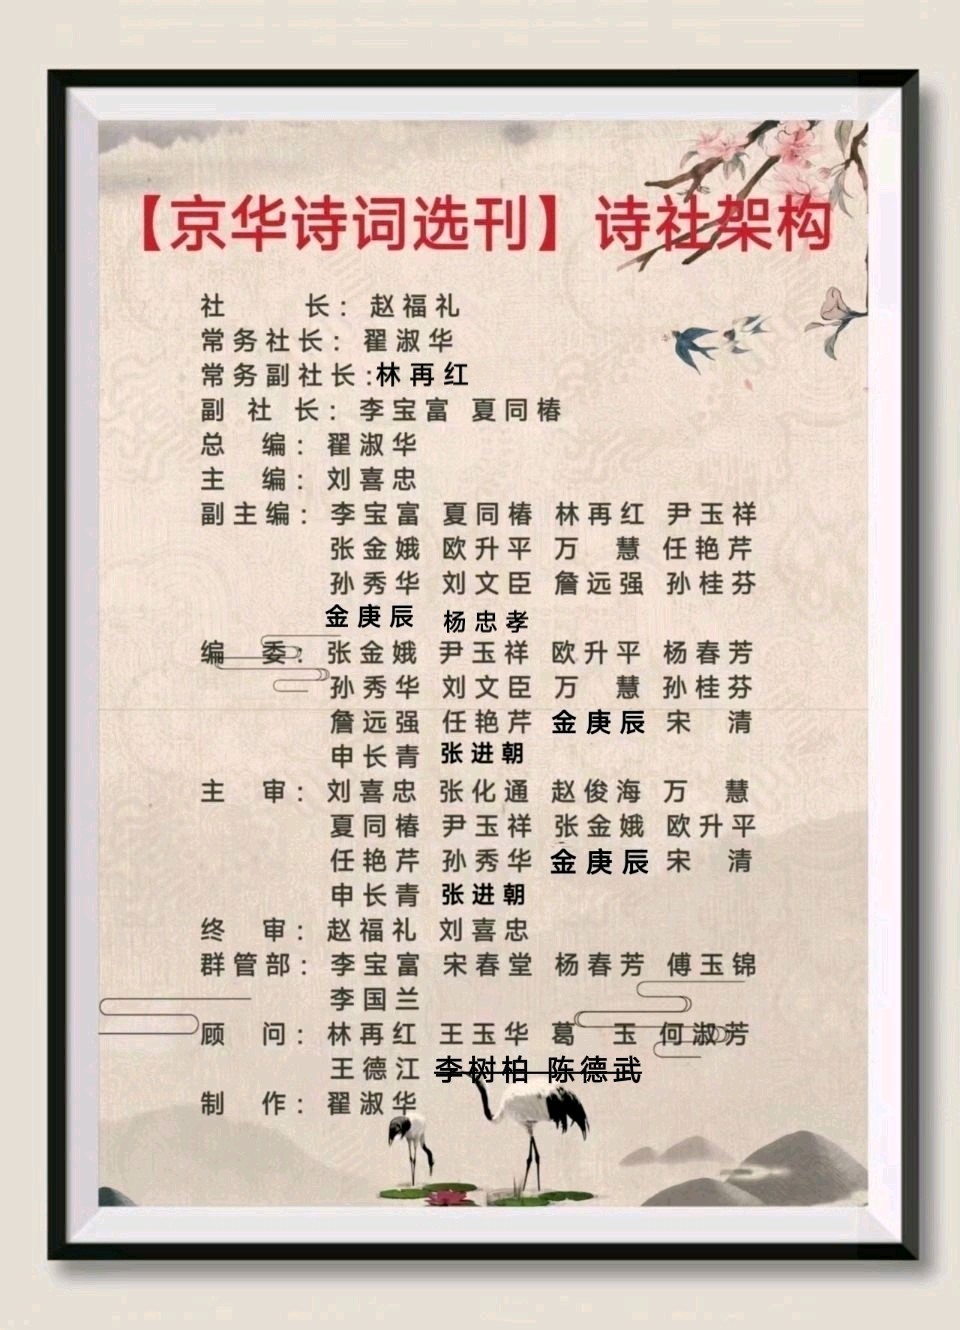 【京华诗词选刊】诗社架构
社 长：赵福礼
常务社长：翟淑华
常务副社长:林再红
副 社 长：李宝富 夏同椿
总 编：翟淑华
主 编：刘喜忠
副主编：李宝富 夏同椿 林再红 尹玉祥
张金娥 欧升平 万 慧 任艳芹
孙秀华 刘文臣 詹远强 孙桂芬
金庚辰 杨忠孝
编 委：张金娥 尹玉祥 欧升平 杨春芳
孙秀华 刘文臣 万 慧 孙桂芬
詹远强 任艳芹 金庚辰 宋 清
申长青 张进朝
主 审：刘喜忠 张化通 赵俊海 万 慧
夏同椿 尹玉祥 张金娥 欧升平
任艳芹 孙秀华 金庚辰 宋 清
申长青 张进朝
终 审：赵福礼 刘喜忠
群管部：李宝富 宋春堂 杨春芳 傅玉锦
李国兰
顾 问：林再红 王玉华 葛 玉 何淑芳
王德江 李树柏 陈德武
制 作：翟淑华